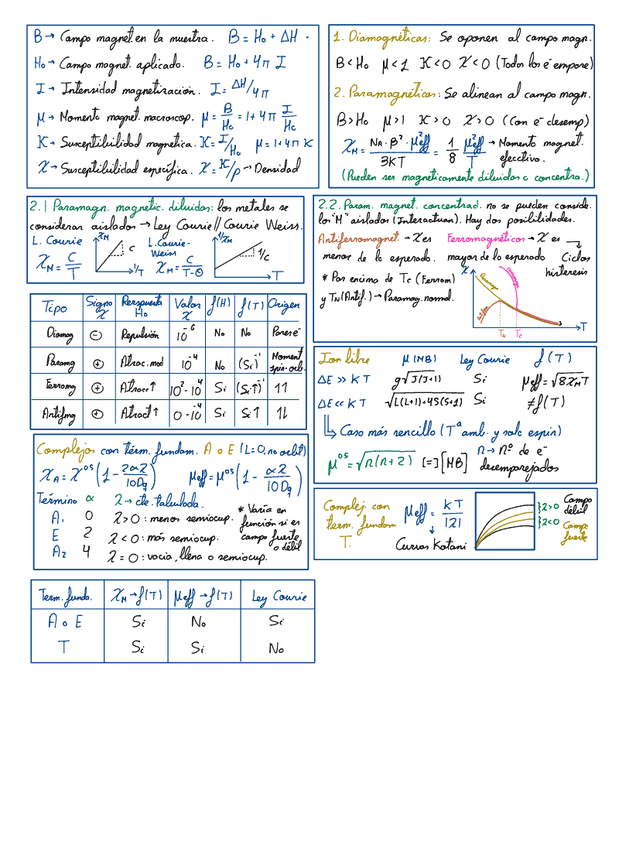 B → Campo magnet. en la muestra. B = Ho + ΔH ·
Ho → Campo magnet. aplicado. B = Ho + 4π I
I → Intensidad magnetización. I = ΔH/4π
μ → Momento magnet. macroscop. μ = B/Ho = 1 + 4π I/Ho
K → Susceptibilidad magnetica. K = I/Ho μ = 1 + 4π K
χ → Susceptibilidad específica. χ = K/ρ → Densidad
1. Diamagnéticas: Se oponen al campo magn.
B < Ho μ < 1 K < 0 χ < 0 (Todos los é empare)
2. Paramagnéticas: Se alinean al campo magn.
B > Ho μ > 1 K > 0 χ > 0 (Con e⁻ desemp)
χM = NA · β² · μ²eff / 3KT = 1/8 μ²eff/T → Momento magnet. efectivo.
(Pueden ser magneticamente diluidas o concentra.)
2.1 Paramagn. magnetic. diluidas: los metales se
consideran aislados → Ley Courie // Courie Weiss.
L. Courie
χM = C/T
χM
C
1/T
L. Courie-
Weiss
χM = C/T-Θ
1/χM
1/C
T
2.2. Param. magnet. concentrad. no se pueden conside.
los "M" aislados (Interactuan). Hay dos posibilidades.
Antiferromagnet. → χ es
menor de lo esperado.
Ferromagnéticos → χ es
mayor de lo esperado
Ciclos
histeresis
* Por encima de Tc (Ferrom)
y TN (Antif.) → Paramag. normal.
χ
TN
Tc
T
Tipo Signo χ Respuesta Ho Valor χ f(H) f(T) Origen
Diamag ⊖ Repulsión 10⁻⁶ No No Pares e⁻
Paramg ⊕ Atrac. mod 10⁻⁴ No (Si)⁻¹ Moment spin-orb.
Ferromg ⊕ Atracc ↑ 10²-10⁴ Si (Si↑)⁻¹ ↑↑
Antifmg ⊕ Atracc ↑ 0-10⁻⁴ Si Si↑ ↑↓
Ion libre μ(MB) Ley Courie f(T)
ΔE >> KT g√J(J+1) Si μeff = √8χMT
ΔE << KT √L(L+1)+4S(S+1) Si ≠ f(T)
Caso más sencillo (Tª amb. y solo espin)
μᵒˢ = √n(n+2) [=] [MB] n → nº de e⁻
desemparejados
Complejos con térm. fundam. A o E (L=0, no orbit)
χA = χᵒˢ (1 - 2αλ/10Dq) μeff = μᵒˢ (1 - αλ/10Dq)
Término α λ → cte. tabulada.
A₁ 0 λ > 0 : menos semiocup.
E 2 λ < 0 : más semiocup.
A₂ 4 λ = 0 : vacía, llena o semiocup.
* Varía en
función si es
campo fuerte
o débil
Complej con
term. fundam
T.
μeff = kT/|λ|
Curvas Kotani
λ>0
λ<0
Campo
débil
Campo
fuerte
Term. funda. χM → f(T) μeff → f(T) Ley Courie
A o E Si No Si
T Si Si No